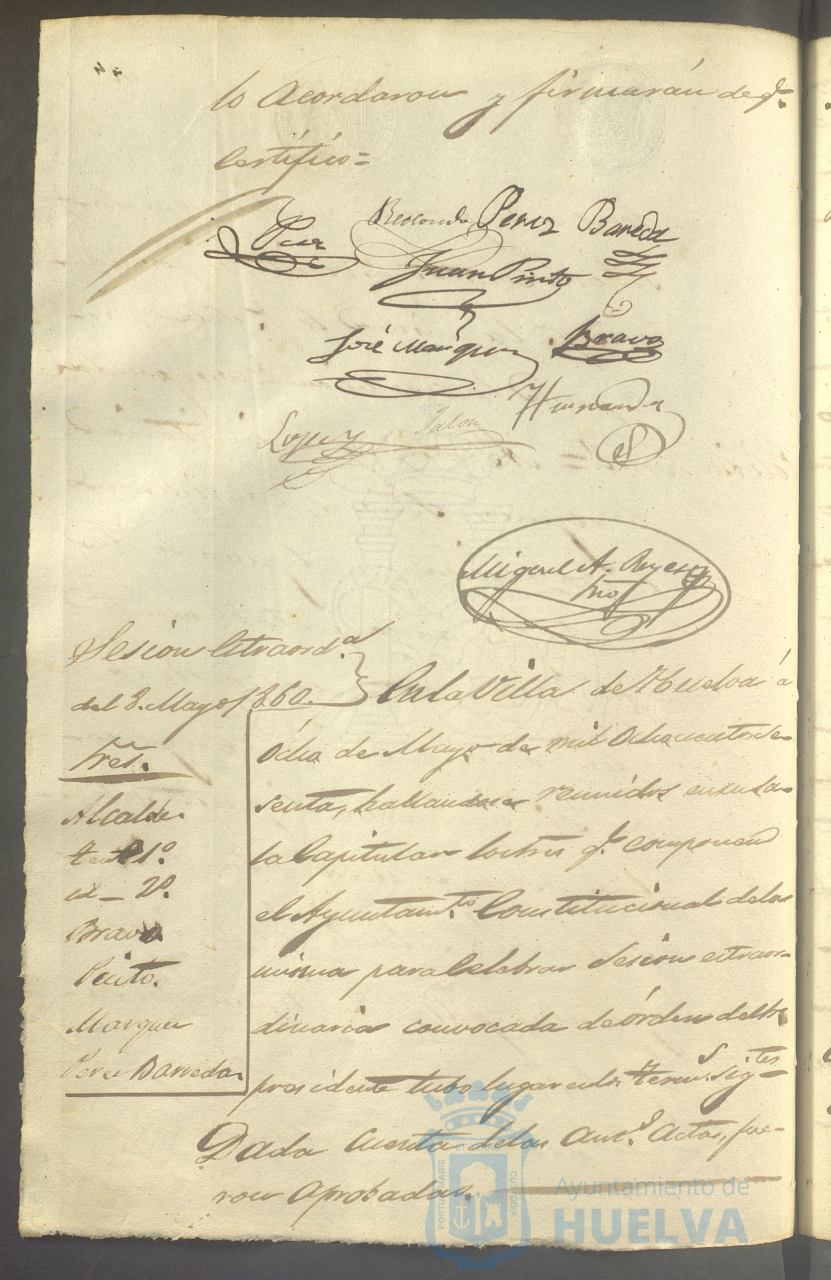 lo acordaron y firmarán de q.
Certifico=
Redondo Perez Bareda
Juan Pinto
José Marquez Bravo
Hernandez
Lopez Jalon
Miguel A.
Sesion Extraord.ª
del 8. Mayo 1860.
Sres.
Alcalde.
ten.te 1º
id_ 2º.
Bravo
Pinto.
Marquez
Perez Barreda
En la Villa de Huelva á
ócho de Mayo de mil Ochocientos se-
senta, hallandose reunidos en su sa-
la Capitular los Sres q.e componen
el Ayuntam.to Constitucional de la
misma para Celebrar Sesion extraor-
dinaria convocada de órden del Sr.
presidente tubo lugar en los term.s Sig.tes
Dada Cuenta de las ant.s actas, fue-
ron aprobadas.
PORTUS MARIS
CUSTODIA
Ayuntamiento de
HUELVA